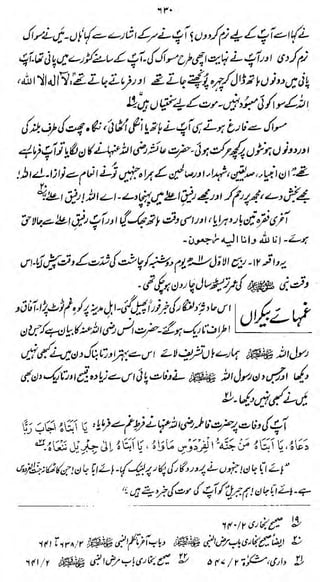 ۶۳۰
نے کہا اسے آپ کے لیے نرم کر دوں؟ آپ نے سر کے اشارے سے کہا ہاں۔ میں نے مسواک
نرم کر دی اور آپ نے نہایت اچھی طرح مسواک کی۔ آپ کے سامنے کٹورے میں پانی تھا۔ آپ
پانی میں دونوں ہاتھ ڈال کر چہرہ پونچھتے جاتے تھے اور فرماتے جاتے تھے، لا الہ الا اللہ،
اللہ کے سوا کوئی معبود نہیں۔ موت کے لیے سختیاں ہیں۱۹
مسواک سے فارغ ہوتے ہی آپ نے ہاتھ یا انگلی اٹھائی، نگاہ چھت کی طرف بلند کی
اور دونوں ہونٹوں پر کچھ حرکت ہوئی۔ حضرت عائشہ رضی اللہ عنہا نے کان لگایا تو آپ فرما رہے
تھے "ان انبیاء، صدیقین، شہداء اور صالحین کے ہمراہ جنہیں تو نے انعام سے نوازا۔ اے اللہ!
مجھے بخش دے، مجھ پر رحم کر اور مجھے رفیق اعلیٰ میں پہنچا دے۔ اے اللہ! رفیق اعلیٰ۲۰
آخری فقرہ تین بار دہرایا، اور اسی وقت ہاتھ جھک گیا اور آپ رفیق اعلیٰ سے جا لاحق
ہوئے۔ انا للہ وانا الیہ راجعون۔
یہ واقعہ ۱۲۔ ربیع الاول ۱۱ھ یوم دوشنبہ کو چاشت کی شدت کے وقت پیش آیا۔ اس
وقت نبی ﷺ کی عمر تریسٹھ سال چار دن ہو چکی تھی۔
غمہائے بیکراں
اس حادثہ دلفگار کی خبر فوراً پھیل گئی۔ اہل مدینہ پر کوہ غم ٹوٹ پڑا۔ آفاق و
اطراف تاریک ہو گئے۔ حضرت انس رضی اللہ عنہ کا بیان ہے کہ جس دن
رسول اللہ ﷺ ہمارے ہاں تشریف لائے اس سے بہتر اور تابناک دن میں نے کبھی نہیں
دیکھا اور جس دن رسول اللہ ﷺ نے وفات پائی اس سے زیادہ قبیح اور تاریک دن بھی
میں نے کبھی نہیں دیکھا۔۲۱
آپ کی وفات پر حضرت فاطمہ رضی اللہ عنہا نے فرط غم سے فرمایا: یَا أَبَتَاهُ أَجَابَ رَبًّا
دَعَاهُ، یَا أَبَتَاهُ مَنْ جَنَّةُ الْفِرْدَوْسِ مَأْوَاهُ، یَا أَبَتَاهُ إِلَىٰ جِبْرِیلَ نَنْعَاهُ۲۲
"ہائے ابا جان! جنہوں نے پروردگار کی پکار پر لبیک کہا۔ ہائے ابا جان! جن کا ٹھکانہ جنت الفردوس
ہے۔ ہائے ابا جان! ہم جبریلؑ کو آپ کی موت کی خبر دیتے ہیں۔"
۱۹ صحیح بخاری ۶۴۰/۲
۲۰ ایضاً صحیح بخاری باب مرض النبی ﷺ وباب آخر ما تکلم النبی ﷺ ۶۳۸/۲ تا ۶۴۱
۲۱ دارمی، مشکوٰۃ ۵۴۷/۲ ۲۲ صحیح بخاری باب مرض النبی ﷺ ۶۴۱/۲